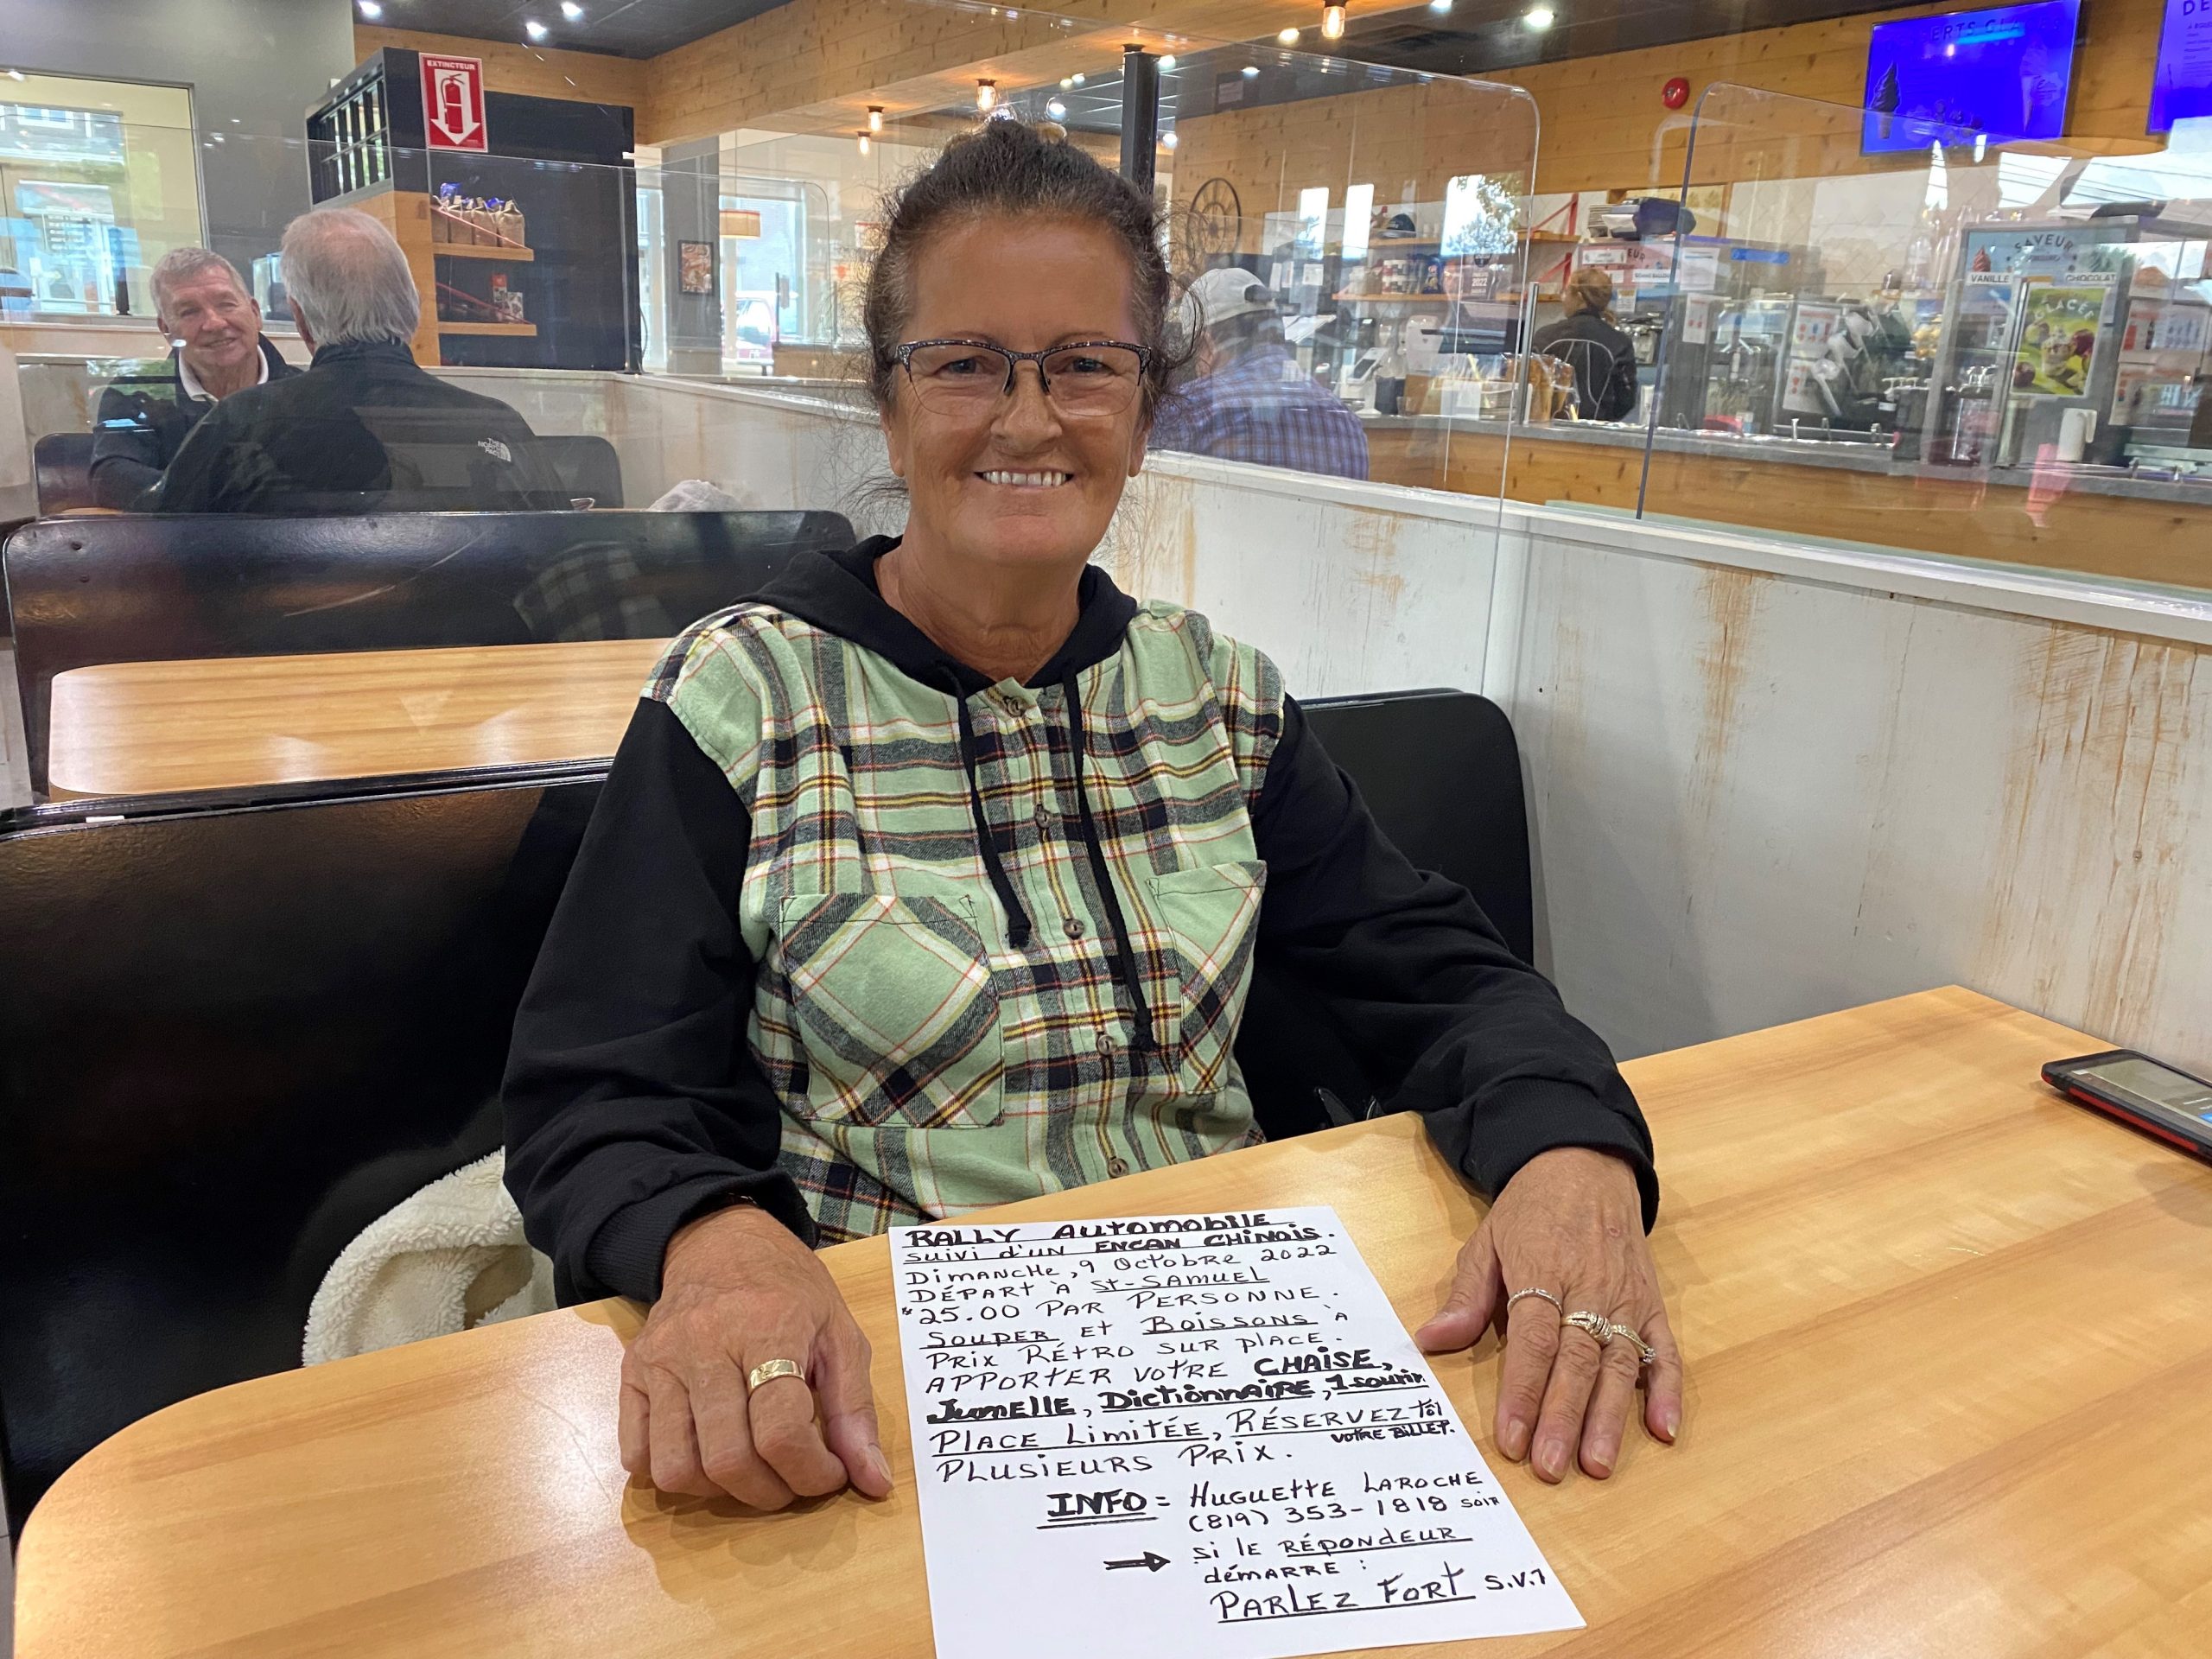 EXTINCTEUR
THE NORTH FACE
SAVEUR
VANILLE
CHOCOLAT
GLACÉE
RALLY AUTOMOBILE
SUIVI D'UN ENCAN CHINOIS.
DIMANCHE, 9 OCTOBRE 2022
DÉPART À ST-SAMUEL
$25.00 PAR PERSONNE.
SOUPER ET BOISSONS À
PRIX RÉTRO SUR PLACE.
APPORTER VOTRE CHAISE,
JUMELLE, DICTIONNAIRE, 1 SOURIR
PLACE LIMITÉE, RÉSERVEZ TÔT
VOTRE BILLET.
PLUSIEURS PRIX.
INFO = HUGUETTE LAROCHE
(819) 353-1818 SOIR
→ SI LE RÉPONDEUR
DÉMARRE :
PARLEZ FORT S.V.P